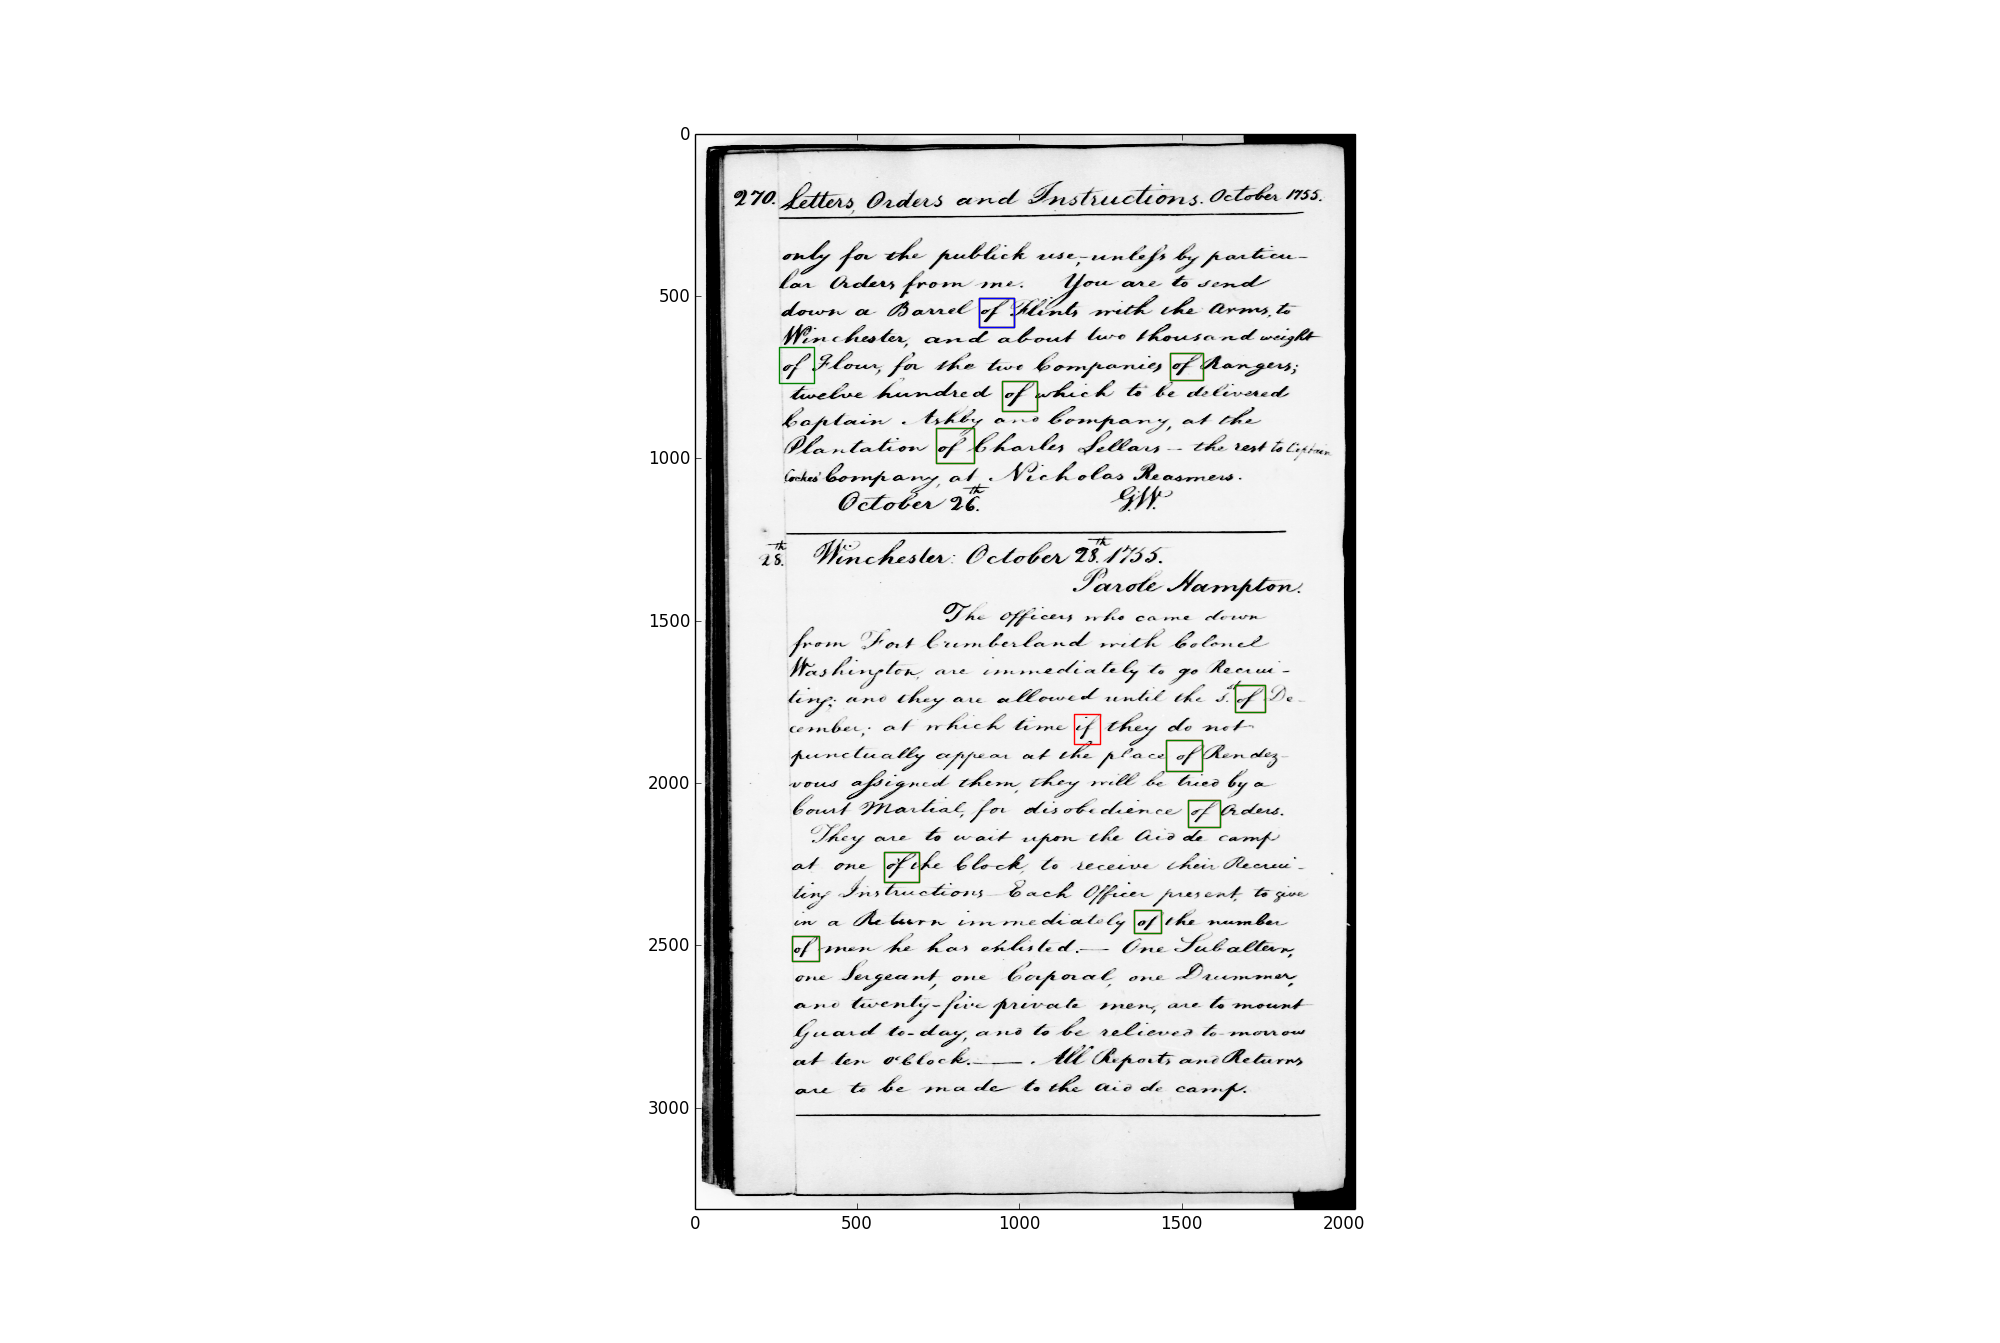 0
270. Letters, Orders and Instructions. October 1755.
only for the publick use,-unless by particu-
lar Orders from me. You are to send
500
down a Barrel of Flints with the Arms, to
Winchester, and about two thousand weight
of Flour, for the two Companies of Rangers;
twelve hundred of which to be delivered
Captain Ashby and Company, at the
Plantation of Charles Sellars - the rest to Captain
1000
Cockes' Company, at Nicholas Reasmers.
October 26.th G.W.
28.th Winchester: October 28.th 1755.
Parole Hampton.
The Officers who came down
1500
from Fort Cumberland with Colonel
Washington, are immediately to go Recrui-
ting; and they are allowed until the 1.st of De-
cember; at which time if they do not
punctually appear at the place of Rendez-
2000
vous assigned them, they will be tried by a
Court Martial, for disobedience of Orders.
They are to wait upon the Aid de camp
at one of the Clock, to receive their Recrui-
ting Instructions - Each Officer present, to give
in a Return immediately of the number
2500
of men he has enlisted. — One Subaltern,
one Sergeant, one Corporal, one Drummer,
and twenty-five private men, are to mount
Guard to-day, and to be relieved to-morrow
at ten o'Clock. — . All Reports and Returns
are to be made to the Aid de camp.
3000
0 500 1000 1500 2000